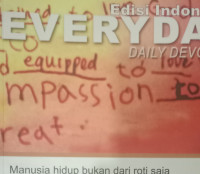 Edisi Indon
EVERYDA
DAILY DEVO
to
d equipped to love
mpassion to
reat.
Manusia hidup bukan dari roti saja